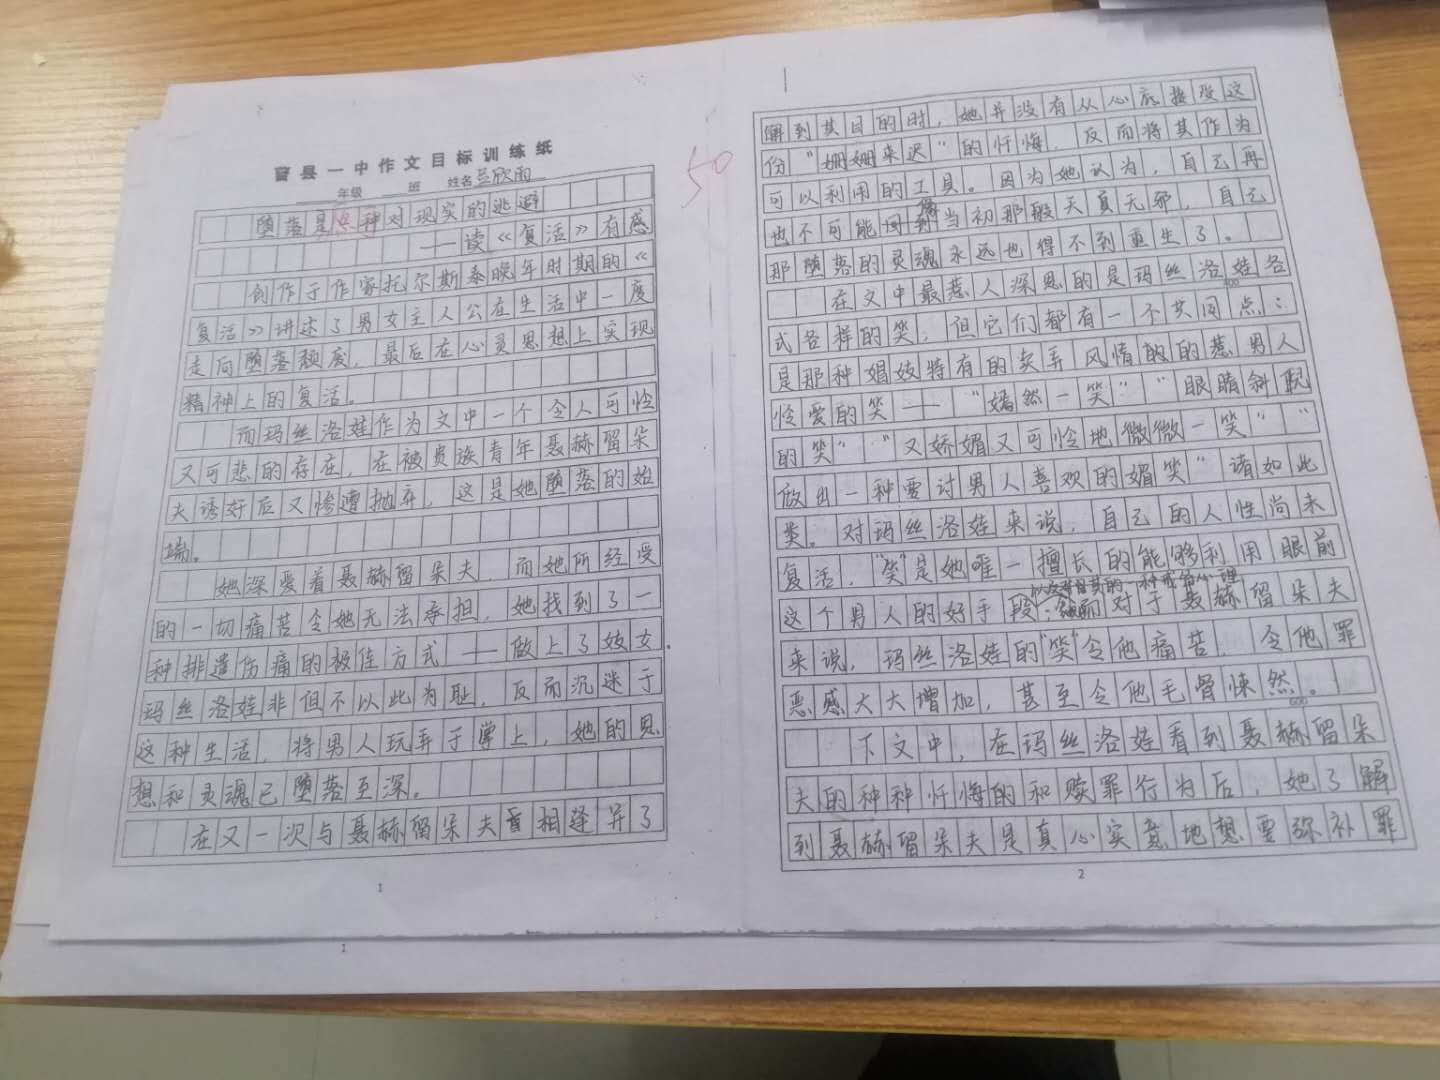 曹县一中作文目标训练纸
年级 班 姓名 兰欣雨
50
堕落是一种对现实的逃避
——读《复活》有感
创作于作家托尔斯泰晚年时期的《
复活》讲述了男女主人公在生活中一度
走向堕落颓废，最后在心灵思想上实现
精神上的复活。
而玛丝洛娃作为文中一个令人可怜
又可悲的存在，在被贵族青年聂赫留朵
夫诱奸后又惨遭抛弃，这是她堕落的始
端。
她深爱着聂赫留朵夫，而她所经受
的一切痛苦令她无法承担，她找到了一
种排遣伤痛的极佳方式——做上了妓女.
玛丝洛娃非但不以此为耻，反而沉迷于
这种生活，将男人玩弄于掌上，她的思
想和灵魂已堕落至深。
在又一次与聂赫留朵夫相逢并了
1
1
解到其目的时，她并没有从心底接受这
份“姗姗来迟”的忏悔，反而将其作为
可以利用的工具。因为她认为，自己再
也不可能像当初那般天真无邪，自己
那堕落的灵魂永远也得不到重生了。
在文中最惹人深思的是玛丝洛娃各
400
式各样的笑，但它们都有一个共同点：
是那种娼妓特有的卖弄风情的惹男人
怜爱的笑——“嫣然一笑”“眼睛斜睨
的笑”“又娇媚又可怜地微微一笑”“
做出一种要讨男人喜欢的媚笑”诸如此
类。对玛丝洛娃来说，自己的人性尚未
复活，“笑”是她唯一擅长的能够利用眼前
这个男人的好手段；对于聂赫留朵夫
来说，玛丝洛娃的“笑”令他痛苦，令他罪
恶感大大增加，甚至令他毛骨悚然。
600
下文中，在玛丝洛娃看到聂赫留朵
夫的种种忏悔的和赎罪行为后，她了解
到聂赫留朵夫是真心实意地想要弥补罪
2